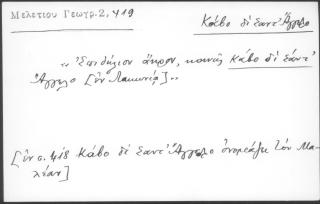 Μελετίου Γεωγρ. 2, 419
Κάβο δι Σαντ' Άγγελο
"Ἐπιδήλιον ἄκρον, κοινῶς Κάβο δι Σάντ'
Ἄγγελο [ἐν Λακωνίᾳ]"
[ἐν σ. 418 Κάβο δι Σαντ' Άγγελο ὀνομάζει τὸν Μα-
λέαν]